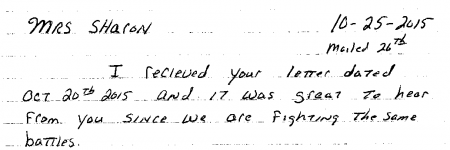 MRS SHARON 10-25-2015
mailed 26th
I recieved your letter dated
OCT 20th 2015 and it was great to hear
From you since we are Fighting the same
battles.